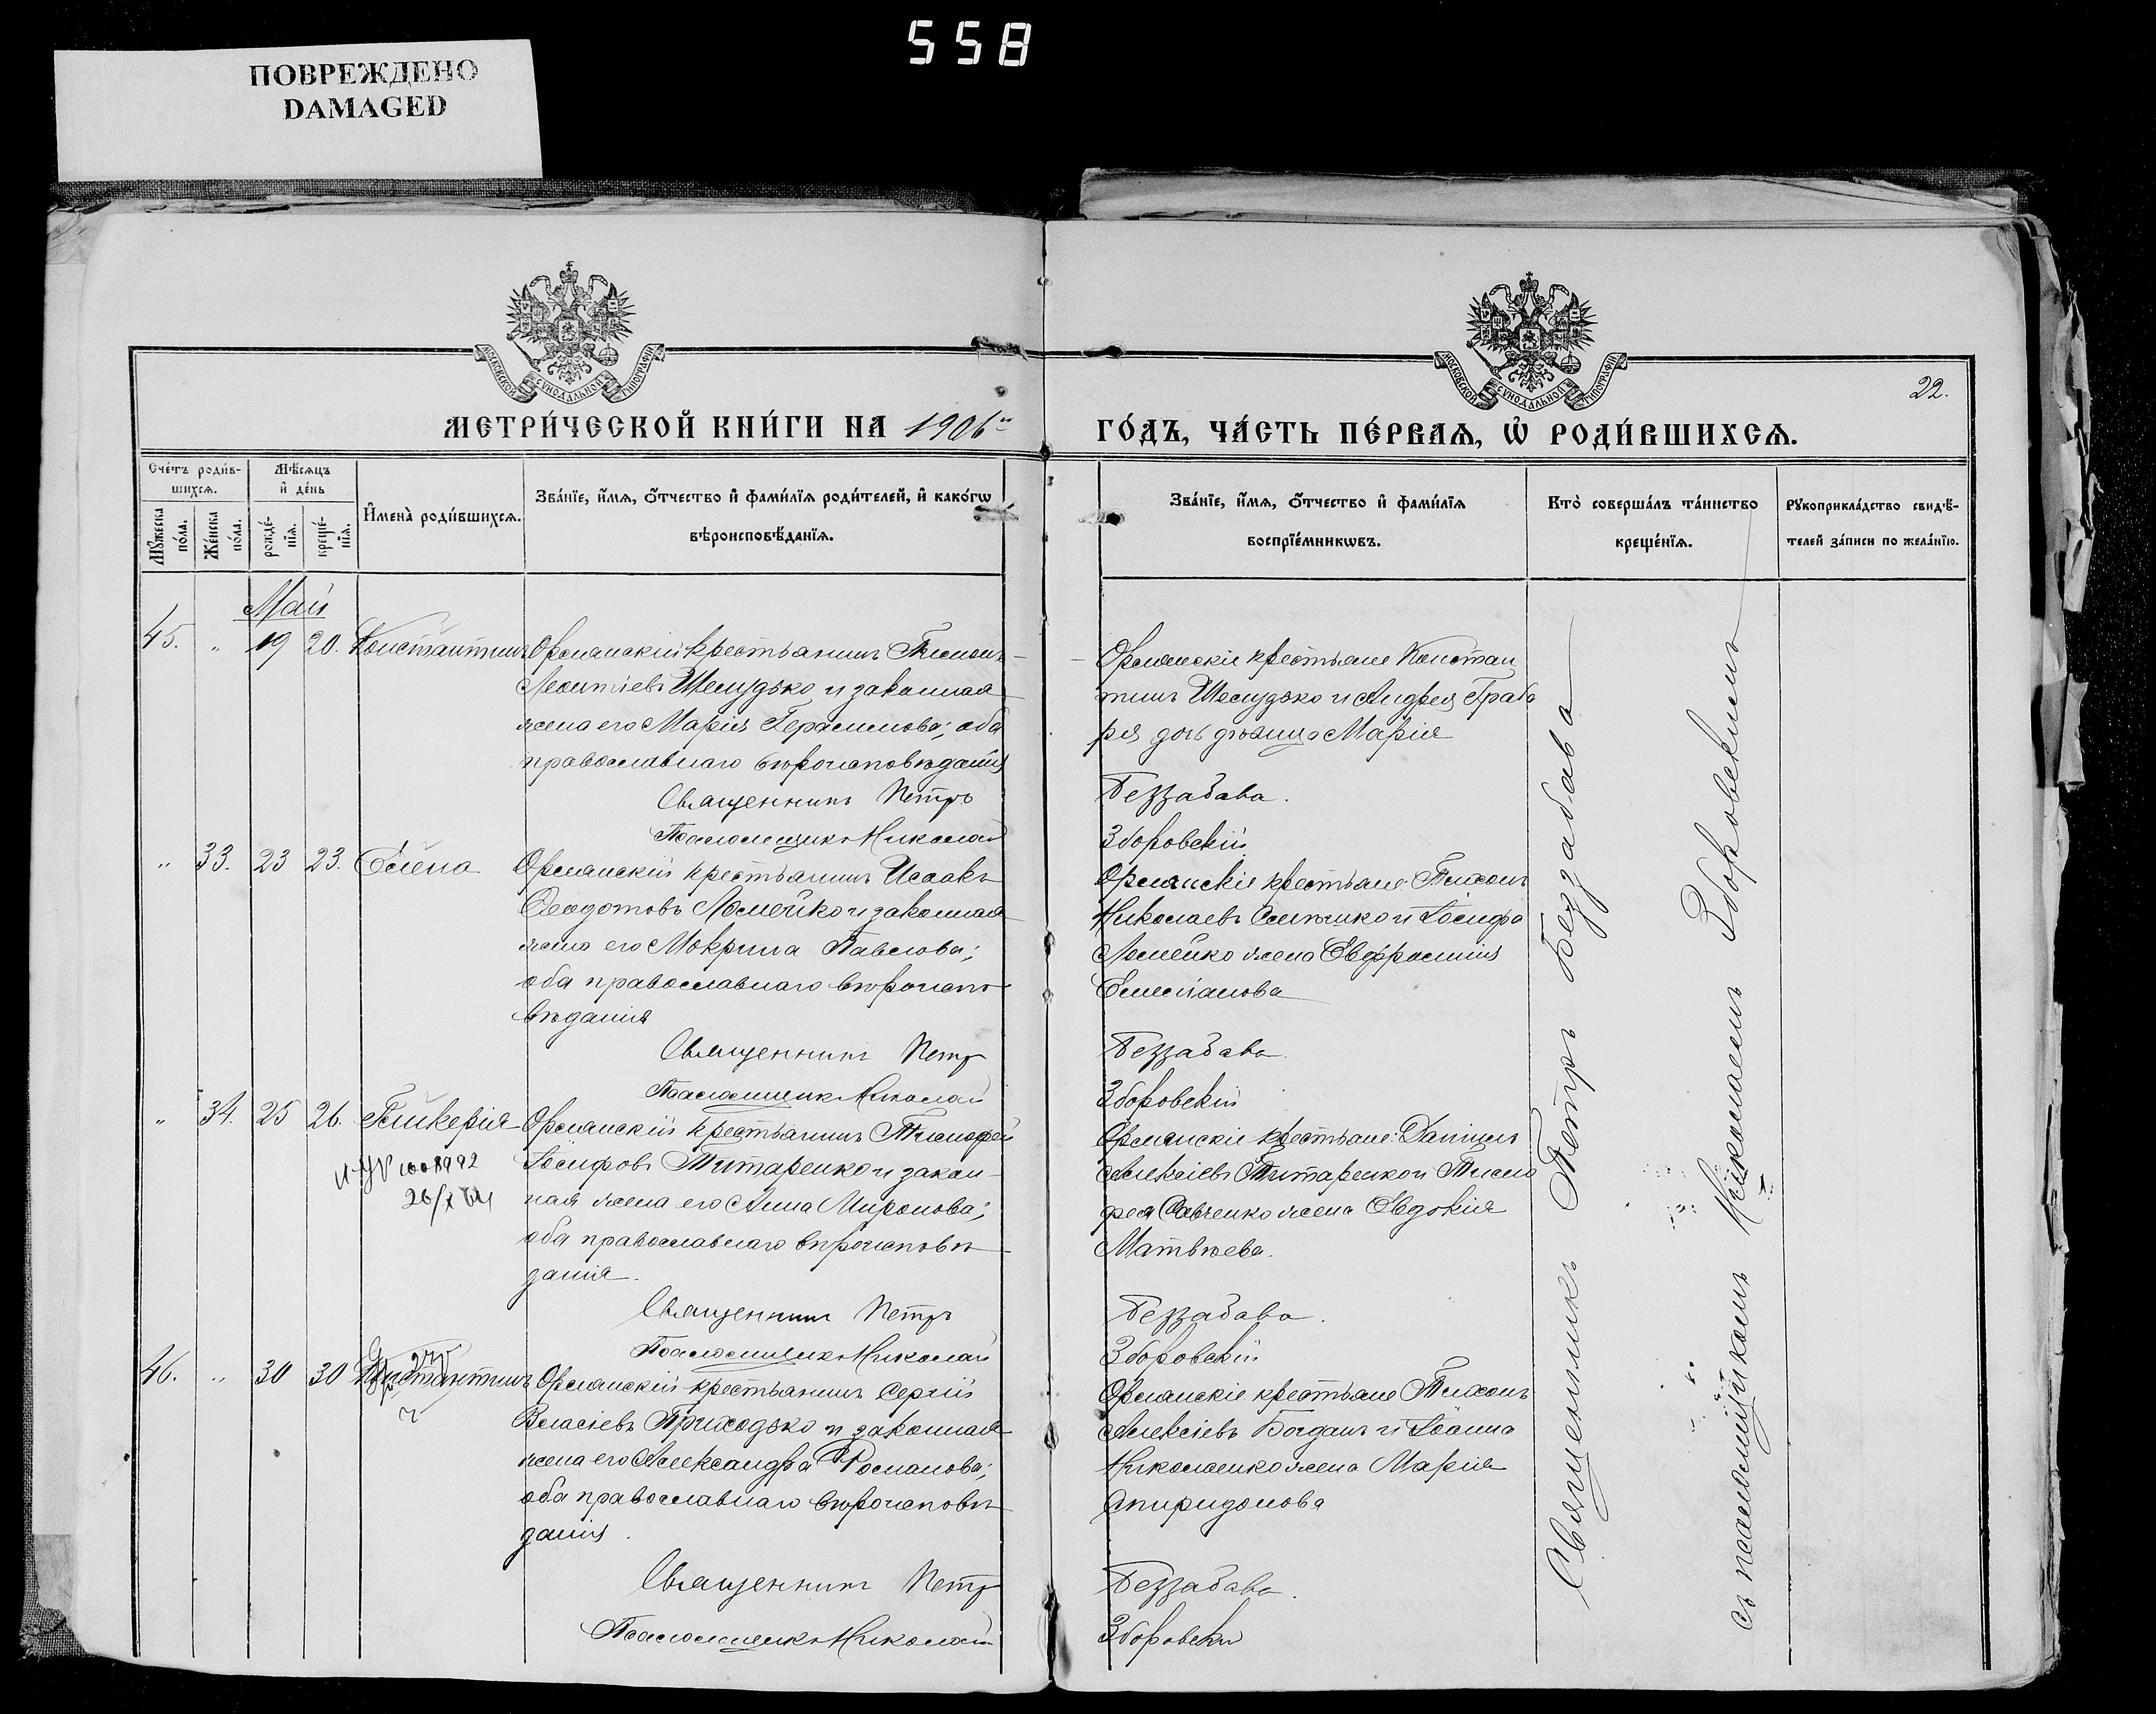 558
ПОВРЕЖДЕНО
DAMAGED
МОСКОВСКОЙ СѴНОДАЛЬНОЙ ТИПОГРАФІИ
МОСКОВСКОЙ СѴНОДАЛЬНОЙ ТИПОГРАФІИ
22.
МЕТРИ́ЧЕСКОЙ КНИ́ГИ НА 1906
ГО́ДЪ, ЧА́СТЬ ПЕ́РВАѦ, Ѡ҆ РОДИ́ВШИХСѦ.
Сче́тъ роди́в-
шихсѧ.
Мꙋ́жеска по́ла.
Же́нска по́ла.
Мѣ́сѧцъ
и҆ де́нь
рожде́-
нїѧ.
креще́-
нїѧ.
И҆мена̀ роди́вшихсѧ.
Зва́нїе, и҆́мѧ, ѻ҆́тчество и҆ фами́лїѧ роди́телей, и҆ како́гѡ
вѣроисповѣ́данїѧ.
Зва́нїе, и҆́мѧ, ѻ҆́тчество и҆ фами́лїѧ
воспрїе́мникѡвъ.
Кто̀ соверша́лъ та́инство
креще́нїѧ.
Рꙋкоприкла́дство свидѣ́-
телей за́писи по жела́нїю.
Май
45. " 19 20. Константинъ
Орлянскій крестьянинъ Тимонъ
Леонтіевъ Шелудько и законная
жена его Марія Герасимова; оба
православнаго вѣроисповѣданія
Священникъ Петръ
Псаломщикъ Николай
Орлянскіе крестьяне Констан
тинъ Шелудько и Андрея Граба
ря дочь дѣвица Марія
Беззабава.
Зборовскій
" 33. 23 23. Елена
Орлянскій крестьянинъ Исаакъ
Ѳеодотовъ Ломейко и законная
жена его Мокрина Павлова;
оба православнаго вѣроиспо
вѣданія
Священникъ Петр
Псаломщикъ Николай
Орлянскіе крестьяне: Тихонъ
Николаевъ и Іосифа
Ломейко жена Евфросинія
Емеліанова
Беззабава.
Зборовскій
" 34. 25 26. Гликерія
1008992
Орлянскій крестьянинъ Тимофей
Іосифовъ Титаренко и закон-
ная жена его Анна Миронова;
оба православнаго вѣроисповѣ
данія.
Священникъ Петръ
Псаломщикъ Николай
Орлянскіе крестьяне: Даніилъ
Алексіевъ Титаренко и Тимо
фея Савченко жена Евдокія
Матвѣева.
Беззабава.
Зборовскій
46. " 30 30 Константинъ
Орлянскій крестьянинъ Сергій
Власіевъ Приходько и законная
жена его Александра Романова;
оба православнаго вѣроисповѣ
данія.
Священникъ Петр
Псаломщикъ Николай
Орлянскіе крестьяне Тихонъ
Алексіевъ Богданъ и Іоанна
Николаенко жена Марія
Спиридонова
Беззабава.
Зборовскій
Священникъ Петръ Беззабава
съ псаломщикомъ Николаемъ Зборовскимъ